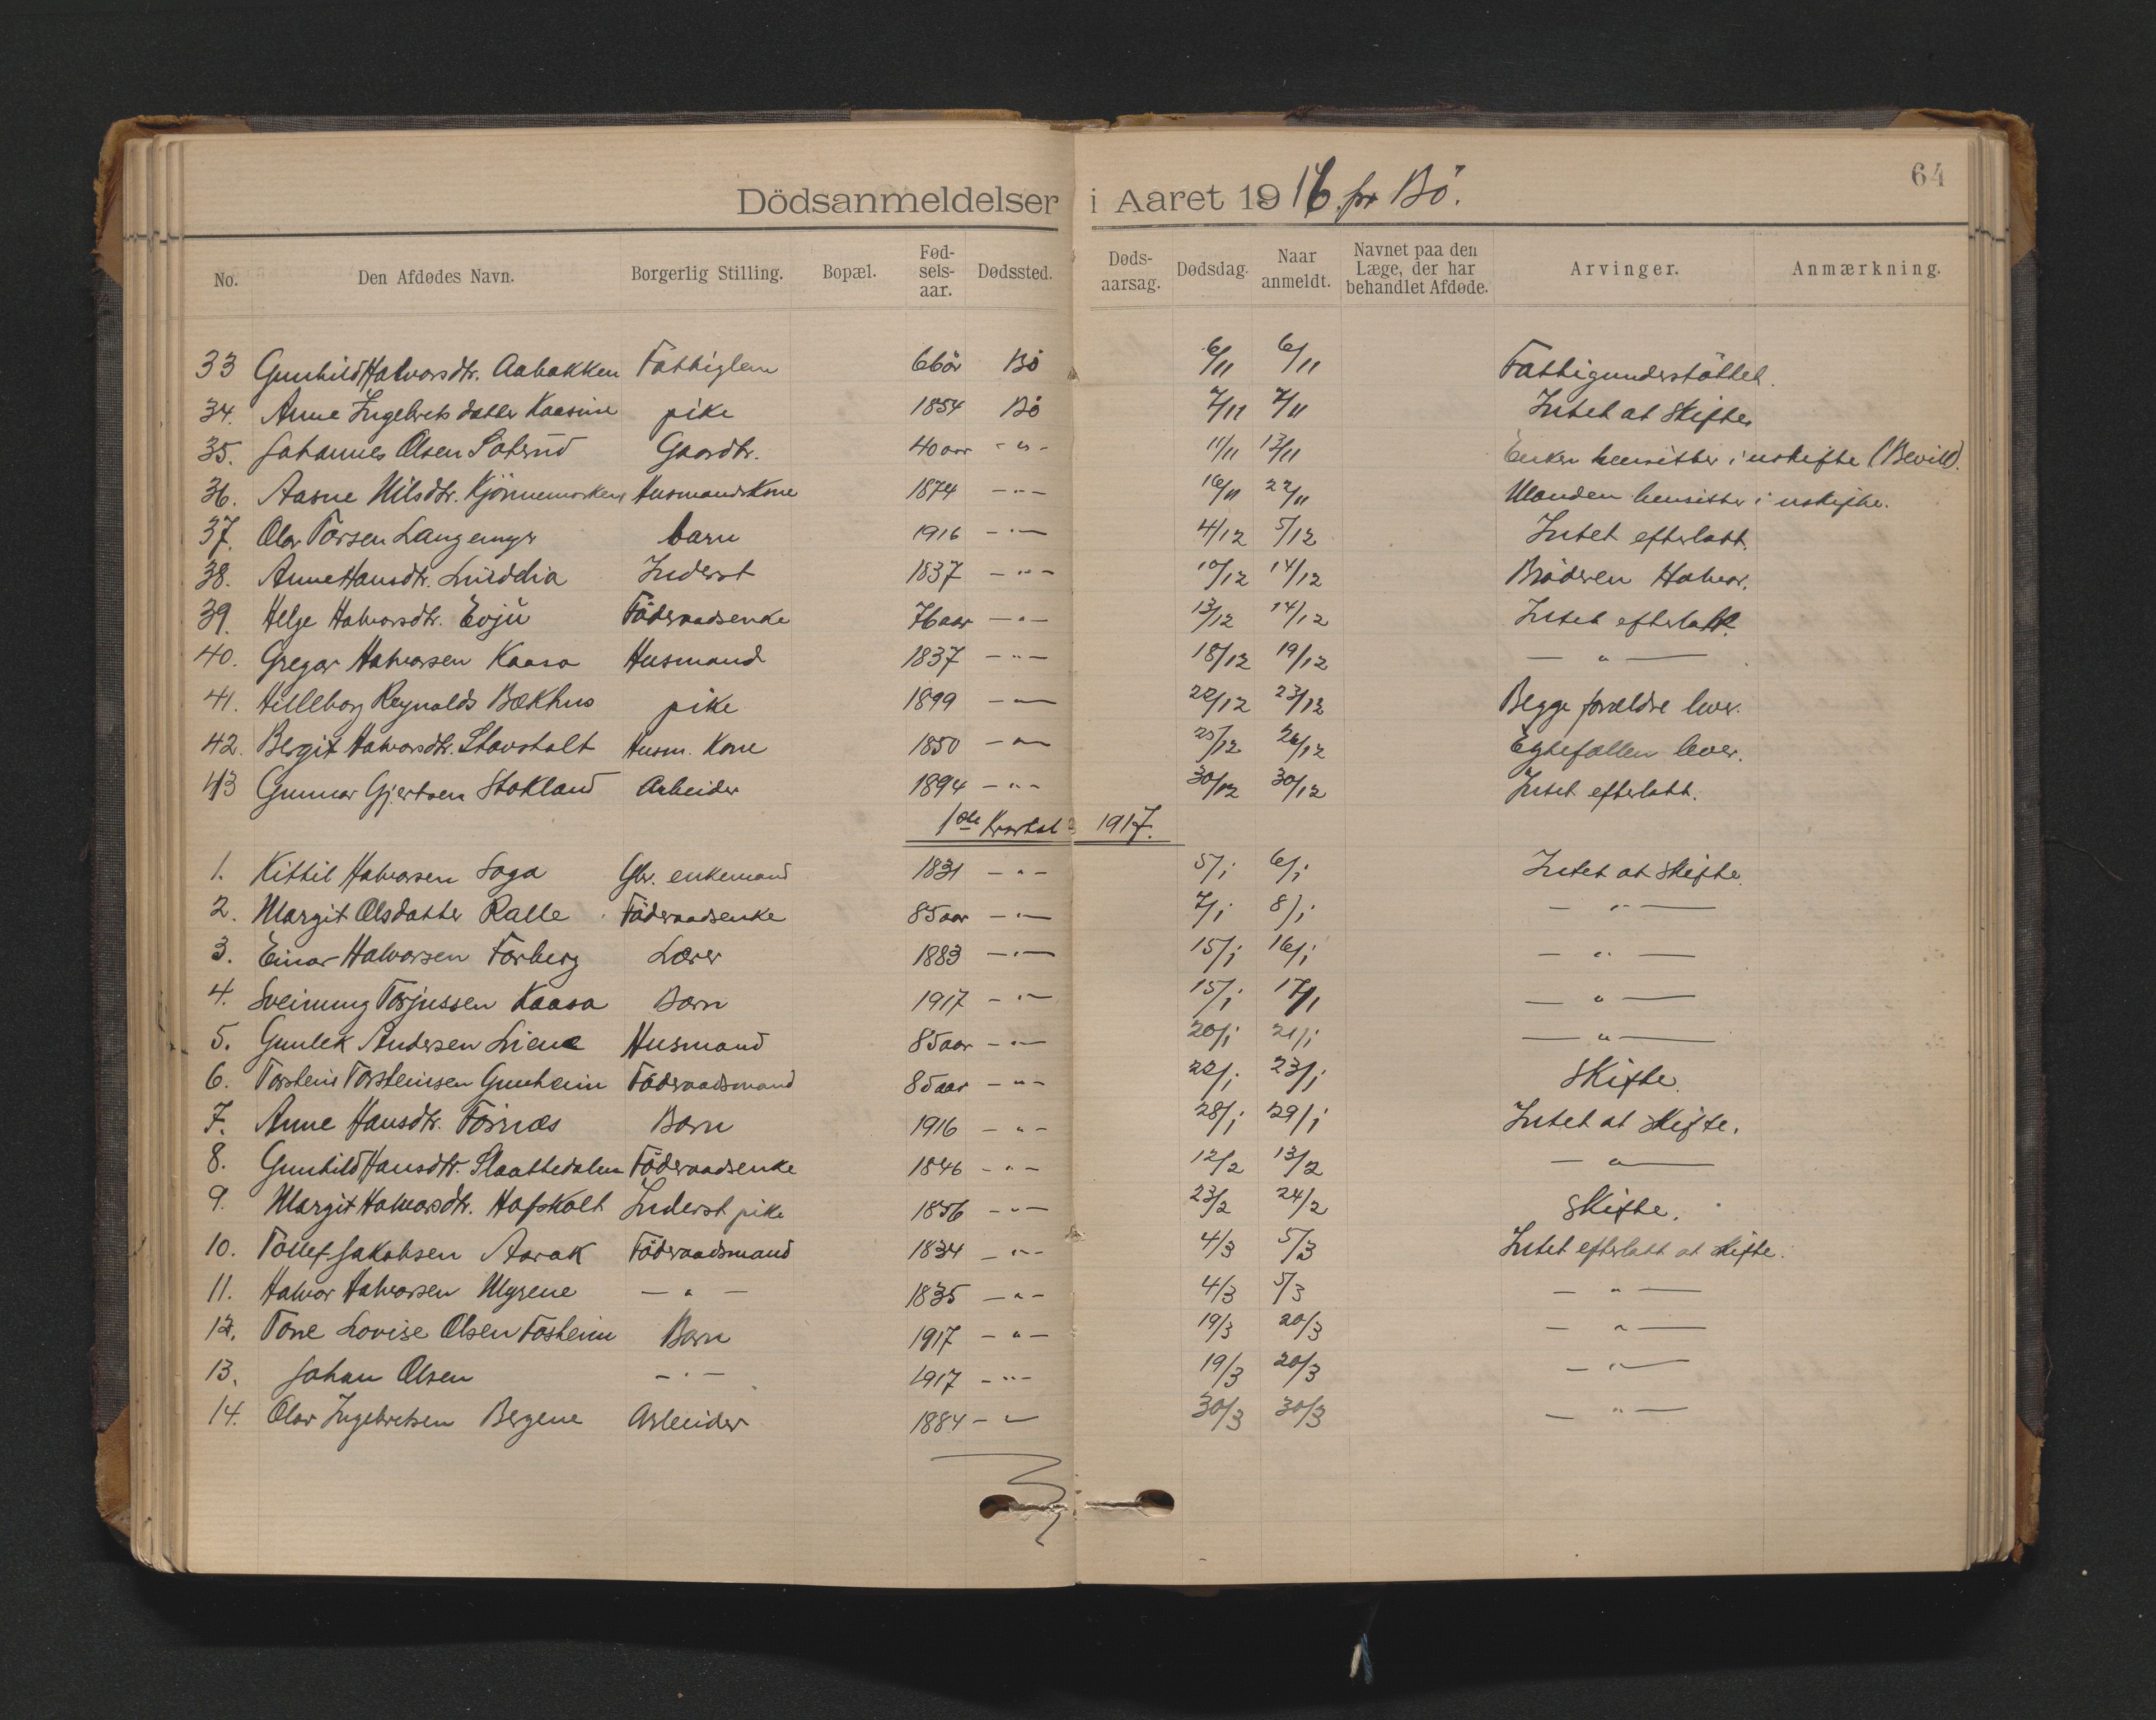 64
Dödsanmeldelser i Aaret 1916. for Bö.
No. Den Afdødes Navn. Borgerlig Stilling. Bopæl. Fød-sels-aar. Dødssted. Døds-aarsag. Dødsdag. Naar anmeldt. Navnet paa den Læge, der har behandlet Afdøde. Arvinger. Anmærkning.
33 Gunhild Halvorsdtr. Aabakken Fattiglem 66 år Bö 6/11 6/11 Fattigunderstöttet.
34. Anne Ingebrets datter Kaasine pike 1854 Bö 7/11 7/11 Intet at skifte
35. Johannes Olsen Saterud Gaardbr. 40 aar - " - 11/11 13/11 Enken hensitter i uskifte (Bevill).
36. Aasne Nilsdtr. Husmandskone 1874 - " - 16/11 22/11 Manden hensitter i uskifte.
37. Olav Torsen Langemyr barn 1916 - " - 4/12 5/12 Intet efterlatt.
38. Anne Hansdtr. Inderst 1837 - " - 10/12 14/12 Bröderen Halvor.
39. Helge Halvorsdtr. Evju Föderaadsenke 76 aar - " - 13/12 14/12 Intet efterlatt.
40. Gregar Halvorsen Kaasa Husmand 1837 - " - 18/12 19/12 - " -
41. Hilleborg Reynolds Bækhus pike 1899 - " - 22/12 23/12 Begge forældre lever.
42. Bergit Halvorsdtr. Stavsholt Husm. Kone 1850 - " - 25/12 26/12 Egtefællen lever.
43 Gunnar Gjertsen Stokland Arbeider 1894 - " - 30/12 30/12 Intet efterlatt.
1ste Kvartal 1917.
1. Kittil Halvorsen Saga Gbr. enkemand 1831 - " - 5/1 6/1 Intet at skifte.
2. Margit Olsdatter Ralle Föderaadsenke 85 aar - " - 7/1 8/1 - " -
3. Einar Halvorsen Forberg Lærer 1883 - " - 15/1 16/1 - " -
4. Sveinung Torjussen Kaasa Barn 1917 - " - 15/1 17/1 - " -
5. Gunlek Andersen Liene Husmand 85 aar - " - 20/1 21/1 - " -
6. Torstein Torsteinsen Gunheim Föderaadsmand 85 aar - " - 22/1 23/1 Skifte.
7. Anne Hansdtr.Förnæs Barn 1916 - " - 28/1 29/1 Intet at skifte.
8. Gunhild Hansdtr. Slaattedalen Föderaadsenke 1846 - " - 12/2 13/2 - " -
9. Margit Halvorsdtr. Hafskolt Inderst pike 1856 - " - 23/2 24/2 Skifte.
10. Tollef Jakobsen Aarak Föderaadsmand 1834 - " - 4/3 5/3 Intet efterlatt at skifte.
11. Halvor Halvorsen Myrene - " - 1835 - " - 4/3 5/3 - " -
12. Tone Lovise Olsen Fosheim Barn 1917 - " - 19/3 20/3 - " -
13. Johan Olsen - " - 1917 - " - 19/3 20/3 - " -
14. Olav Ingebretsen Bergene Arbeider 1884 - " - 30/3 30/3 - " -